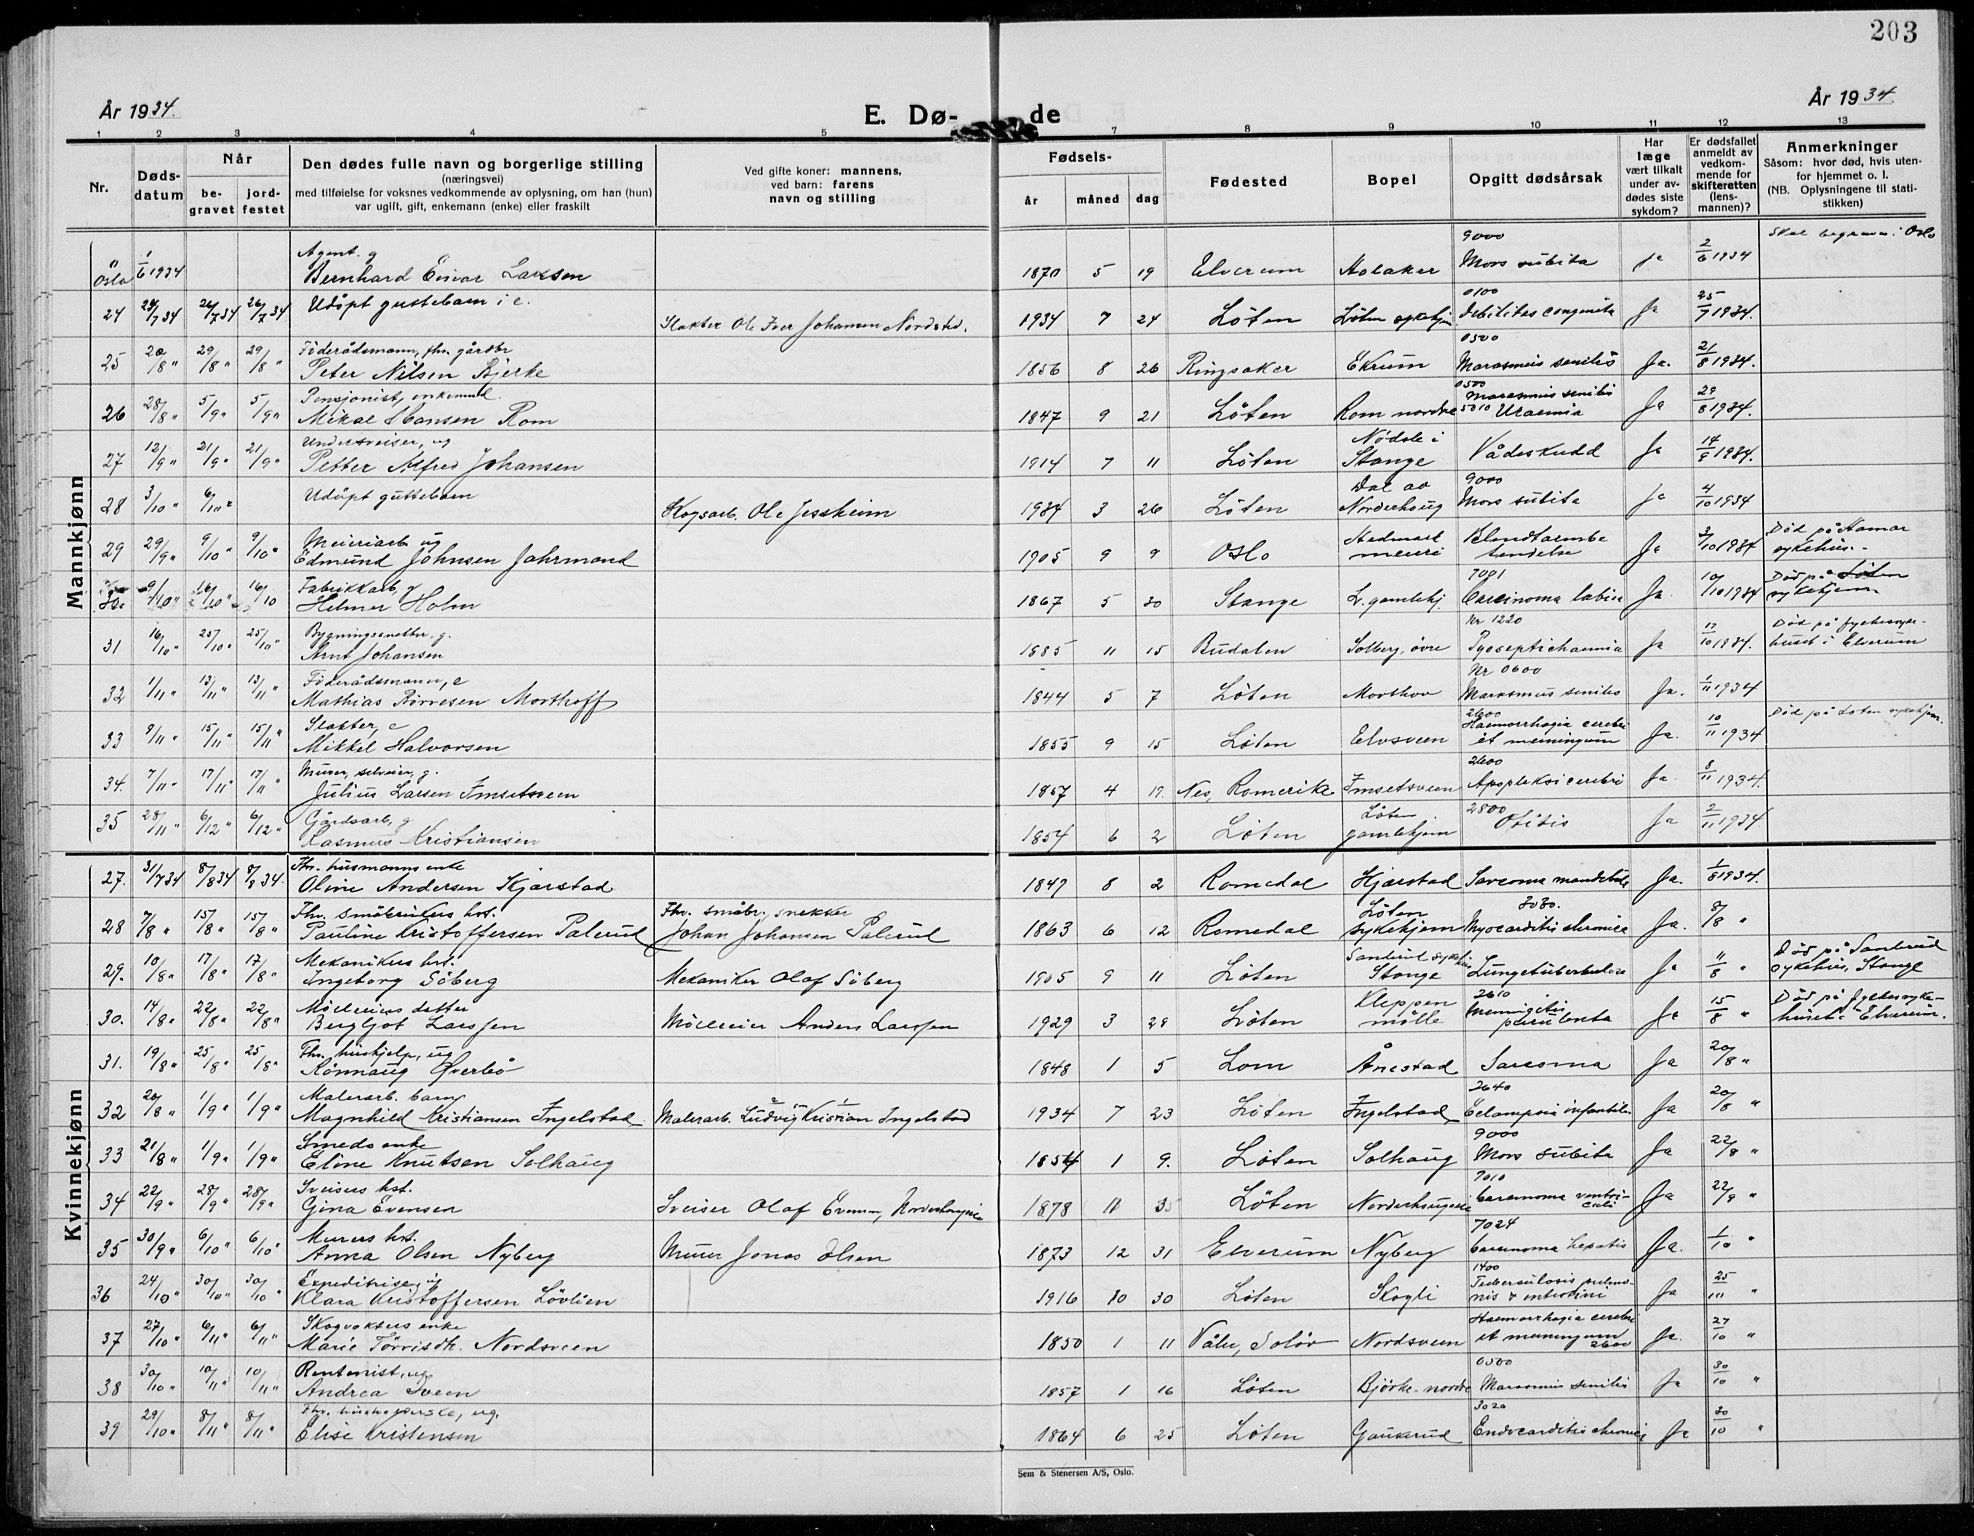 203
År 1934.
E. Dø-
de
År 1934.
1 2 3 4 5 7 8 9 10 11 12 13
Nr.
Døds-
datum
Når
be-
gravet
jord-
festet
Den dødes fulle navn og borgerlige stilling
(næringsvei)
med tilføielse for voksnes vedkommende av oplysning, om han (hun)
var ugift, gift, enkemann (enke) eller fraskilt
Ved gifte koner: mannens,
ved barn: farens
navn og stilling
Fødsels-
år måned dag
Fødested
Bopel
Opgitt dødsårsak
Har
læge
vært tilkalt
under av-
dødes siste
sykdom?
Er dødsfallet
anmeldt av
vedkom-
mende for
skifteretten
(lens-
mannen)?
Anmerkninger
Såsom: hvor død, hvis uten-
for hjemmet o. l.
(NB. Oplysningene til stati-
stikken)
Mannkjønn
Agent. g 9000 Skal begraves i Oslo
Oslo 1/6 1934 Bernhard Einar Larsen 1870 5 19 Elverum Aolaker Mors subita ja 2/6 1934
Udöpt guttebarn i e. 0100
24 24/7 34 26/7 34 26/7 34 Slakter Ole Iver Johansen Nordstd. 1934 7 24 Löten Löten sykehjm Debilitas congenita Ja 25/7 1934.
Föderådsmann, fhv. gårdbr 0500
25 20/8 " 29/8 " 29/8 " Peter Nilsen Bjerke 1856 8 26 Ringsaker Ekrum Marasmus senilis Ja. 21/8 1934.
Pensjonist, enkemand 0500 Marasmus senilis
26 28/8 " 5/9 " 5/9 " Mikal Hansen Rom 1847 9 21 Löten Rom nordre 5010 Uraemia Ja 29/8 1934.
Undersveiser, ug Nødsle i
27 12/9 " 21/9 " 21/9 " Petter Alfred Johansen 1914 7 11 Löten Stange Vådeskudd Ja 14/9 1934.
Udöpt guttebarn Dal av 9000
28 3/10 " 6/10 " Skogsarb. Ole Jessheim 1934 3 26 Löten Norderhoug Mors subita Ja 4/10 1934
Meieriarb ug Hedmark Død på Hamar
29 29/9 " 9/10 " 9/10 " Edmund Johnsen Jahrmand 1905 9 9 Oslo meieri Ja 3/10 1934 sykehus.
Fabrikkarb, g 7001 Död på Löten
30. 9/10 " 16/10 " 16/10 Helmer Holm 1867 5 30 Stange L. gamlehj. Carcinoma labia Ja. 10/10 1934 sykehjem
Bygningssnekker, g. Nr 1220 Död på fylkessyke-
31 16/10 " 25/10 " 25/10 " Arnt Johansen 1885 11 15 Budalen Solberg, övre Pyoseptichaemia Ja 17/10 1934. huset i Elverum
Föderådsmann, e Nr 0600
32 1/11 " 13/11 " 13/11 " Mathias Börresen Morthoff 1844 5 7 Löten Morthov Marasmus senilis Ja. 1/11 1934
Slakter, e 2600 Haemorrhagia cerebri Död på Löten sykehjem.
33 9/11 " 15/11 " 15/11 " Mikkel Halvorsen 1855 9 15 Löten Elvsveen et meningum Ja. 10/11 1934
Murer, selveier, g. 2600
34. 7/11 " 17/11 " 17/11 " Julius Larsen Imsetsveen 1857 4 19. Nes, Romerike Imsetsveen Apopleksi cerebri Ja. 8/11 1934.
Gårdsarb, g Löten 2800
35 28/11 " 6/12 " 6/12 " Rasmus Kristiansen 1854 6 2 Löten gamlehjem Otitis Ja 2/11 1934
Kvinnekjønn
Fhv. husmanns enke
27. 31/7 34 8/8 34 8/8 34. Oline Andersen Kjærstad 1847 8 2 Romedal Hjærstad Sarcoma mandibulae Ja. 1/8 1934.
Fhv. småbrukers hst. Fhv. småbr., snekker Löten 3030.
28 7/8 " 15/8 " 15/8 " Pauline Kristoffersen Palerud Johan Johansen Palerud 1863 6 12 Romedal sykehjem Myocarditis chronica Ja. 8/8 "
Mekanikers hst. Sanderud sykehus Død på Sanderud
29. 10/8 " 17/8 " 17/8 " Ingeborg Söberg Mekaniker Olaf Söberg 1905 9 11 Löten Stange Lungetuberkulose Ja 11/8 " sykehus, Stange
Mölleriers datter Kleppen 2610 Meningitis Död på fylkessyke-
30. 14/8 " 22/8 " 22/8 " Bergljot Larssen Möllerier Anders Larssen 1929 3 28 Löten mölle purulenta Ja 15/8 " huset i Elverum.
Fhv. hushjelp, ug
31. 19/8 " 25/8 " 25/8 " Rönnaug Øverbö 1848 1 5 Lom Ånestad Sarcoma Ja 20/8 "
Malerarb. barn 2640
32 20/8 " 1/9 " 1/9 " Magnhild Kristiansen Ingelstad Malerarb. Ludvig Kristian Ingelstad 1934 7 23 Löten Ingelstad Eclampsia infantilis Ja 20/8 "
Smeds enke 9000
33 21/8 " 1/9 " 1/9 " Eline Knutsen Solhaug 1854 1 9. Löten Solhaug Mors subita Ja 22/8 "
Sveisers hst. 7010
34 22/9 " 28/9 " 28/9 " Gina Evensen Sveiser Olaf Evensen, 1878 11 Löten Carcinoma ventri-culi Ja 22/9 "
Murers hst. 7024
35 30/9 " 6/10 " 6/10 " Anna Olsen Nyberg Murer Jonas Olsen 1873 12 31 Elverum Nyberg Carcinoma hepatis Ja. 1/10 "
Expeditrise, ug 1400 Tuberculosis pulmo-
36 24/10 " 30/10 " 30/10 " Klara Kristoffersen Lövlien 1916 10 30 Löten Skogli nis & intestini Ja 25/10 "
Skogvokters enke Haemorrhagia cerebri
37 27/10 " 6/11 " 6/11 " Marie Törrisdtr. Nordsveen 1850 1 11 Våler, Solör Nordsveen et meningum 2600 Ja. 27/10 "
Rentenist, ug 0500
38 30/10 " 10/11 " 10/11 " Andrea Sveen 1857 1 16 Löten Björke nordre Marasmus senilis Ja 30/10 "
Fhv. husholderske, ug. 3020
39 29/10 " 8/11 " 8/11 " Elise Kristensen 1864 6 25 Löten Gaukerud Endocarditis chronica Ja 30/10 "
Sem & Stenersen A/S, Oslo.